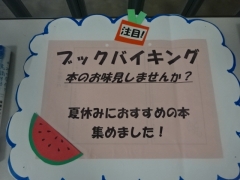 注目!
ブックバイキング
本のお味見しませんか?
夏休みにおすすめの本
集めました!